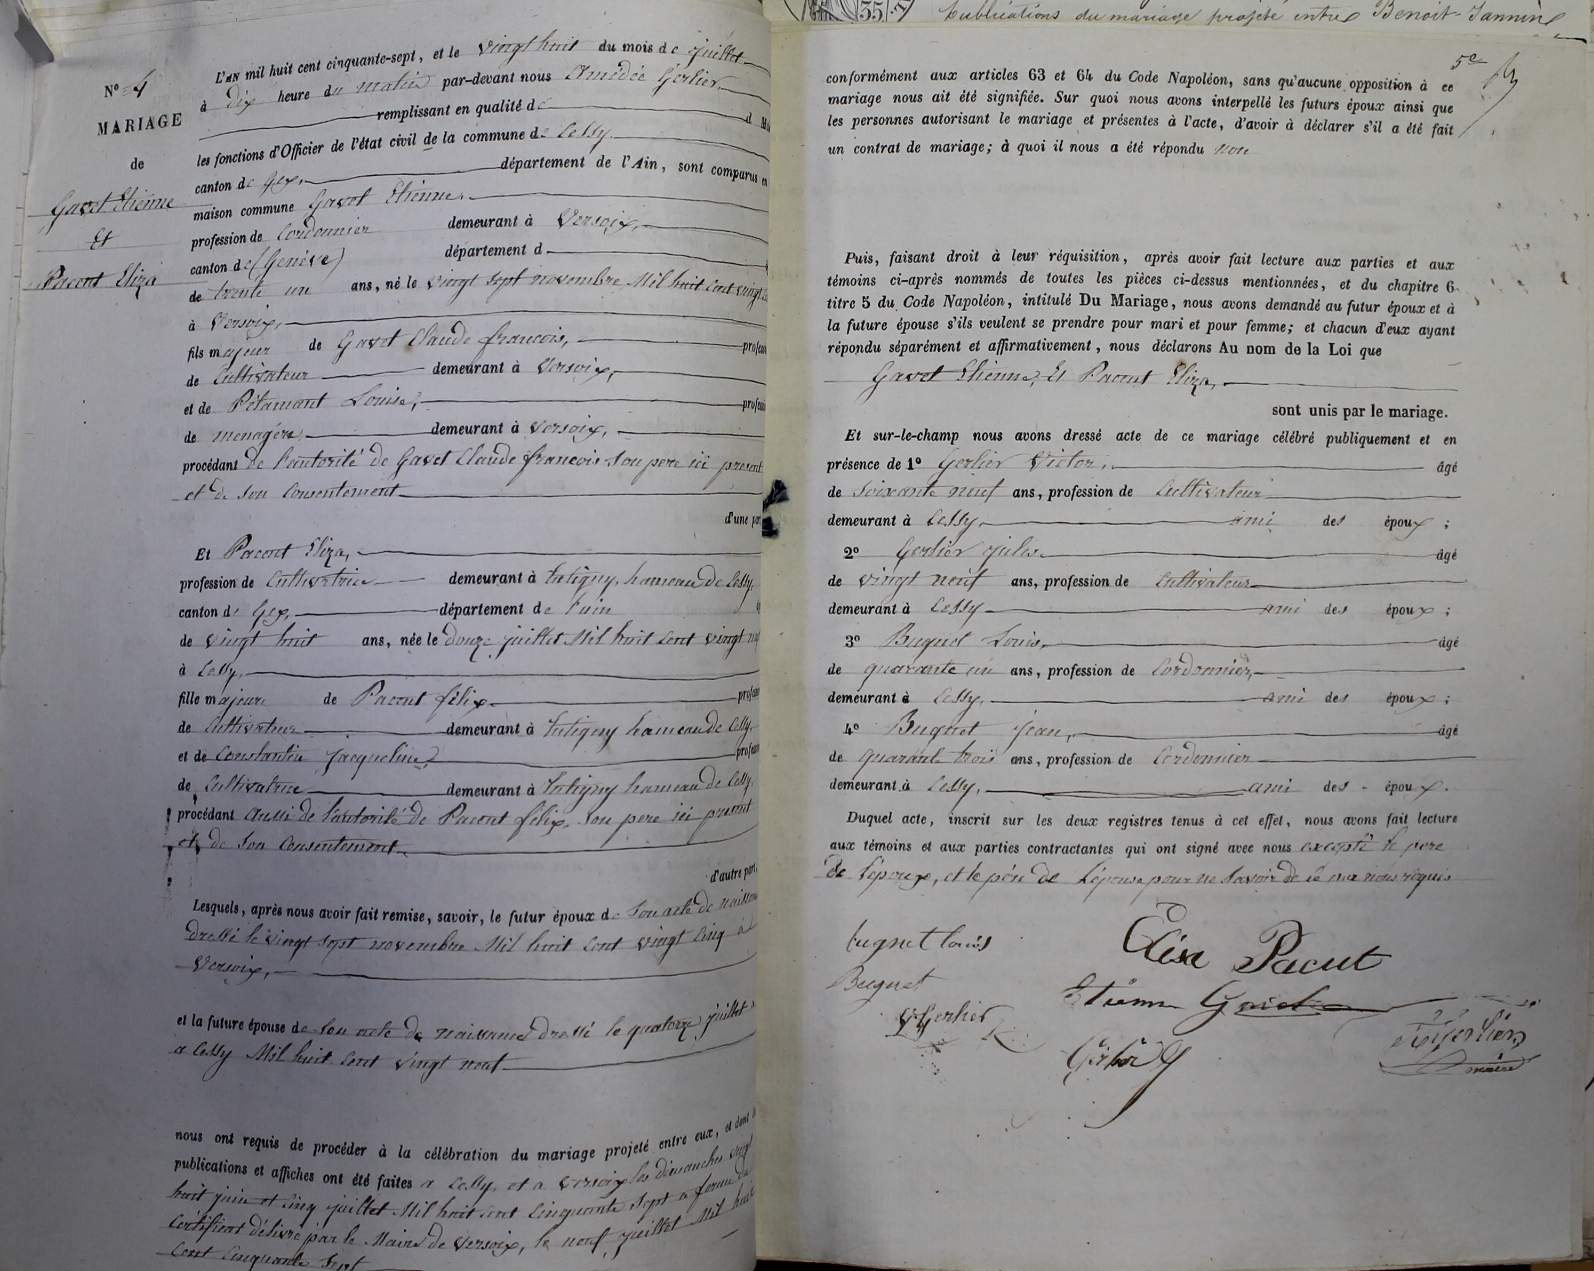 N° 4
MARIAGE
de
Gavet Etienne
Et
Pacout Eliza
L'AN mil huit cent cinquante-sept, et le vingt huit du mois de juillet
à dix heure du matin par-devant nous Amédée Gerlier
remplissant en qualité de d
les fonctions d'Officier de l'état civil de la commune de Cessy
canton de Gex, département de l'Ain, sont comparus en
maison commune Gavet Etienne
profession de Cordonnier demeurant à Versoix,
canton de (Genève) département d
de trente un ans, né le vingt sept novembre Mil huit cent vingt
à Versoix,
fils majeur de Gavet Claude françois, profess
de Cultivateur demeurant à Versoix,
et de Pétamant Louise, profess
de menagère demeurant à Versoix,
procédant de l'autorité de Gavet Claude francois son pere ici present
et de son Consentement
d'une par
Et Pacout Eliza,
profession de Cultivatrice demeurant à Tutigny, hameau de Cessy
canton de Gex, département de l'ain
de vingt huit ans, née le douze juillet Mil huit Cent vingt
à Cessy,
fille majeure de Pacout félix profess
de Cultivateur demeurant à Tutigny hameau de Cessy
et de Constantin Jacqueline profess
de Cultivatrice demeurant à Tutigny hameau de Cessy
procédant aussi de l'autorité de Pacout félix, son pere ici present
et de son Consentement
d'autre part,
Lesquels, après nous avoir fait remise, savoir, le futur époux de son acte de naissan
dressé le vingt sept novembre Mil huit Cent vingt Cinq à
Versoix,
et la future épouse de son acte de naissance dressé le quatorze juillet
a Cessy Mil huit Cent vingt neuf
nous ont requis de procéder à la célébration du mariage projeté entre eux, et dont
publications et affiches ont été faites a Cessy et a Versoix les dimanches vingt
huit juin et Cinq juillet Mil huit Cent Cinquante sept a forme du
Certificat délivré par le Maire de Versoix, le neuf juillet Mil huit
Cent Cinquante Sept
35
Publications du mariage projeté entre Benoit
5e
conformément aux articles 63 et 64 du Code Napoléon, sans qu'aucune opposition à ce
mariage nous ait été signifiée. Sur quoi nous avons interpellé les futurs époux ainsi que
les personnes autorisant le mariage et présentes à l'acte, d'avoir à déclarer s'il a été fait
un contrat de mariage; à quoi il nous a été répondu non
Puis, faisant droit à leur réquisition, après avoir fait lecture aux parties et aux
témoins ci-après nommés de toutes les pièces ci-dessus mentionnées, et du chapitre 6
titre 5 du Code Napoléon, intitulé Du Mariage, nous avons demandé au futur époux et à
la future épouse s'ils veulent se prendre pour mari et pour femme; et chacun d'eux ayant
répondu séparément et affirmativement, nous déclarons Au nom de la Loi que
Gavet Etienne, Et Pacout Eliza,
sont unis par le mariage.
Et sur-le-champ nous avons dressé acte de ce mariage célébré publiquement et en
présence de 1° Gerlier Victor, âgé
de soixante neuf ans, profession de Cultivateur
demeurant à Cessy, ami des époux;
2° Gerlier Jules âgé
de vingt neuf ans, profession de Cultivateur
demeurant à Cessy ami des époux;
3° Buquet Louis, âgé
de quarante un ans, profession de Cordonnier,
demeurant à Cessy, ami des époux;
4° Buquet Jean, âgé
de quarante trois ans, profession de Cordonnier
demeurant à Cessy, ami des époux.
Duquel acte, inscrit sur les deux registres tenus à cet effet, nous avons fait lecture
aux témoins et aux parties contractantes qui ont signé avec nous excepté le pere
de l'époux, et le père de l'épouse pour ne savoir de ce
bugnet louis
Elisa Pacut
Buguet
Etienne Gavet
V Gerlier
Gerlier J
Gerlier
maire